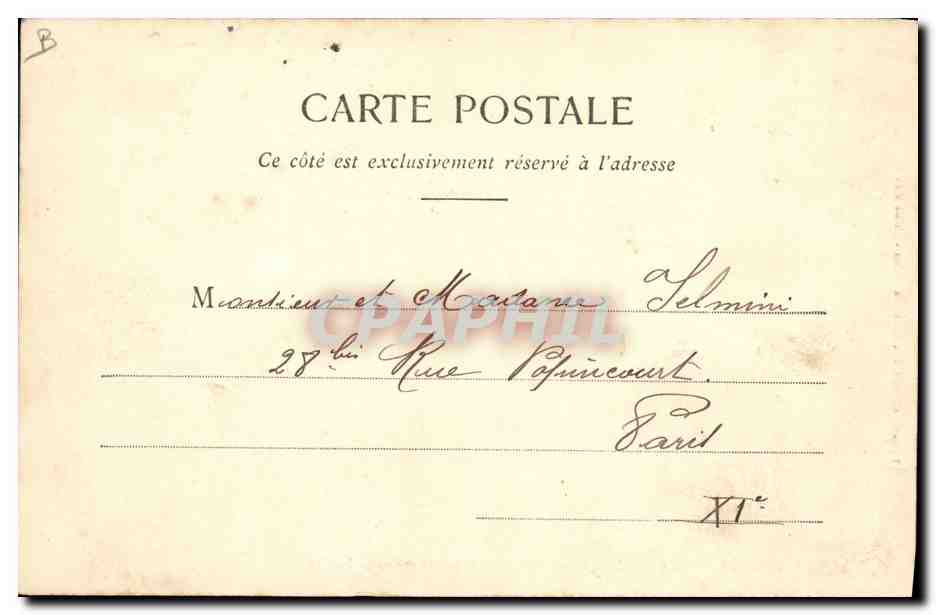 B
CARTE POSTALE
Ce côté est exclusivement réservé à l'adresse
Monsieur et Madame Selmini
CPAPHIL
28 bis Rue Popincourt.
Paris
XIe